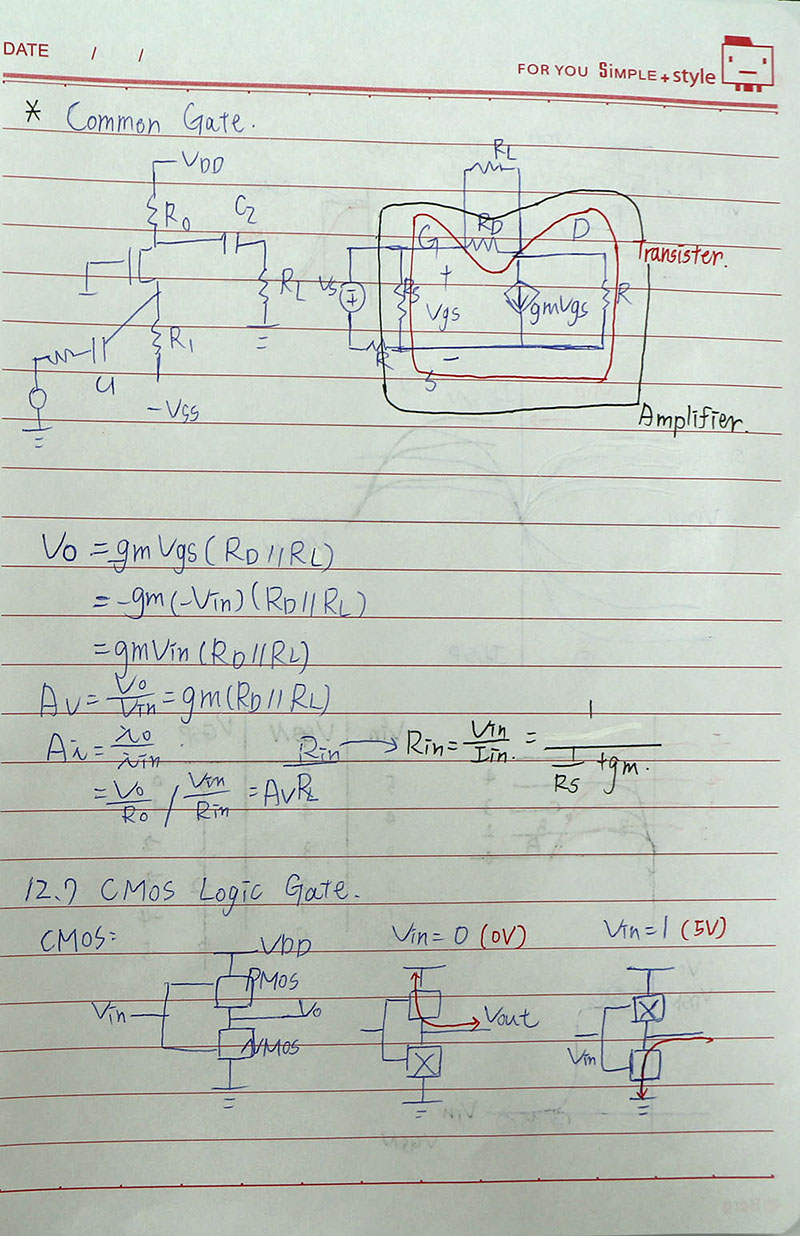 DATE / /
FOR YOU SIMPLE + style
* Common Gate.
VDD
R0
C2
RL
R1
C1
-VSS
RL
G
RD
D
Transister.
Vs
RS
+
Vgs
gmVgs
R
R
-
S
Amplifier.
Vo = gmVgs(RD//RL)
= -gm(-Vin)(RD//RL)
= gmVin(RD//RL)
Av = Vo/Vin = gm(RD//RL)
Ai = io/iin
Rin → Rin = Vin/Iin. = 1/(1/RS + gm.
= Vo/Ro / Vin/Rin = Av Rin/RL
12.7 CMOS Logic Gate.
CMOS:
VDD
Vin = 0 (0V)
Vin = 1 (5V)
PMOS
Vin
Vo
NMOS
Vout
Vin